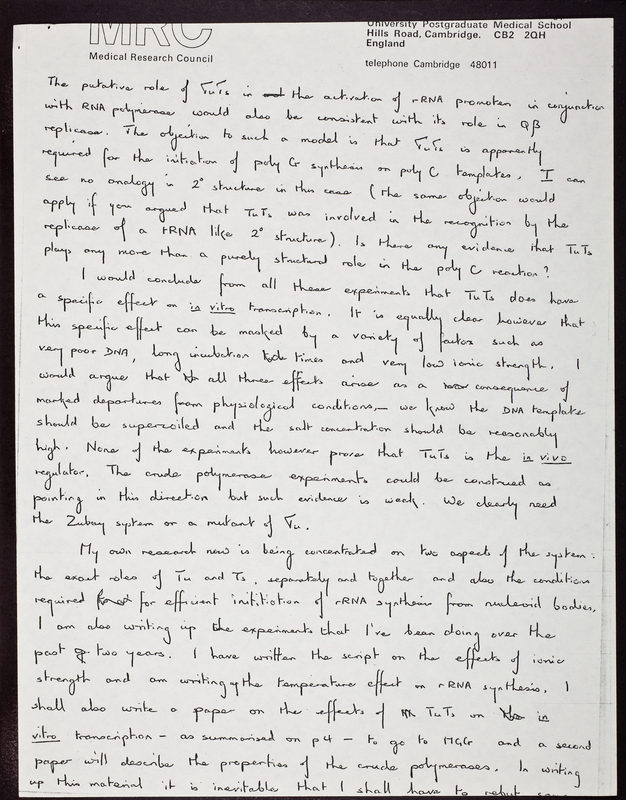 MRC
Medical Research Council
University Postgraduate Medical School
Hills Road, Cambridge. CB2 2QH
England
telephone Cambridge 48011
The putative role of TuTs in the activation of rRNA promoters in conjunction
with RNA polymerase would also be consistent with its role in Qβ
replicase. The objection to such a model is that TuTs is apparently
required for the initiation of poly G synthesis on poly C templates. I can
see no analogy in 2° structure in this case (the same objection would
apply if you argued that TuTs was involved in the recognition by the
replicase of a tRNA like 2° structure). Is there any evidence that TuTs
plays any more than a purely structural role in the poly C reaction?
I would conclude from all these experiments that TuTs does have
a specific effect on in vitro transcription. It is equally clear however that
this specific effect can be masked by a variety of factors such as
very poor DNA, long incubation times and very low ionic strength. I
would argue that all three effects arise as a consequence of
marked departures from physiological conditions, — we know the DNA template
should be supercoiled and the salt concentration should be reasonably
high. None of the experiments however prove that TuTs is the in vivo
regulator. The crude polymerase experiments could be construed as
pointing in this direction but such evidence is weak. We clearly need
the Zubay system or a mutant of Tu.
My own research now is being concentrated on two aspects of the system:
the exact roles of Tu and Ts, separately and together and also the conditions
required for efficient inititiation of rRNA synthesis from nucleoid bodies.
I am also writing up the experiments that I've been doing over the
past two years. I have written the script on the effects of ionic
strength and am writing up the temperature effect on rRNA synthesis. I
shall also write a paper on the effects of TuTs on in
vitro transcription - as summarised on p4 - to go to MGG and a second
paper will describe the properties of the crude polymerases. In writing
up this material it is inevitable that I shall have to rebut some